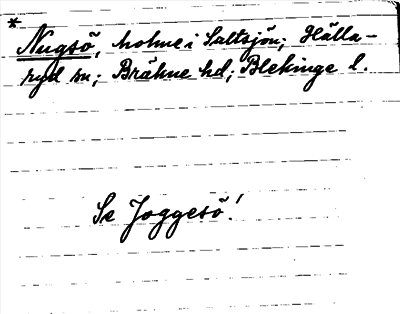 * Nugsö, holme i Saltsjön; Hälla-
ryd sn; Bräkne hd; Blekinge l.
Se Joggesö!